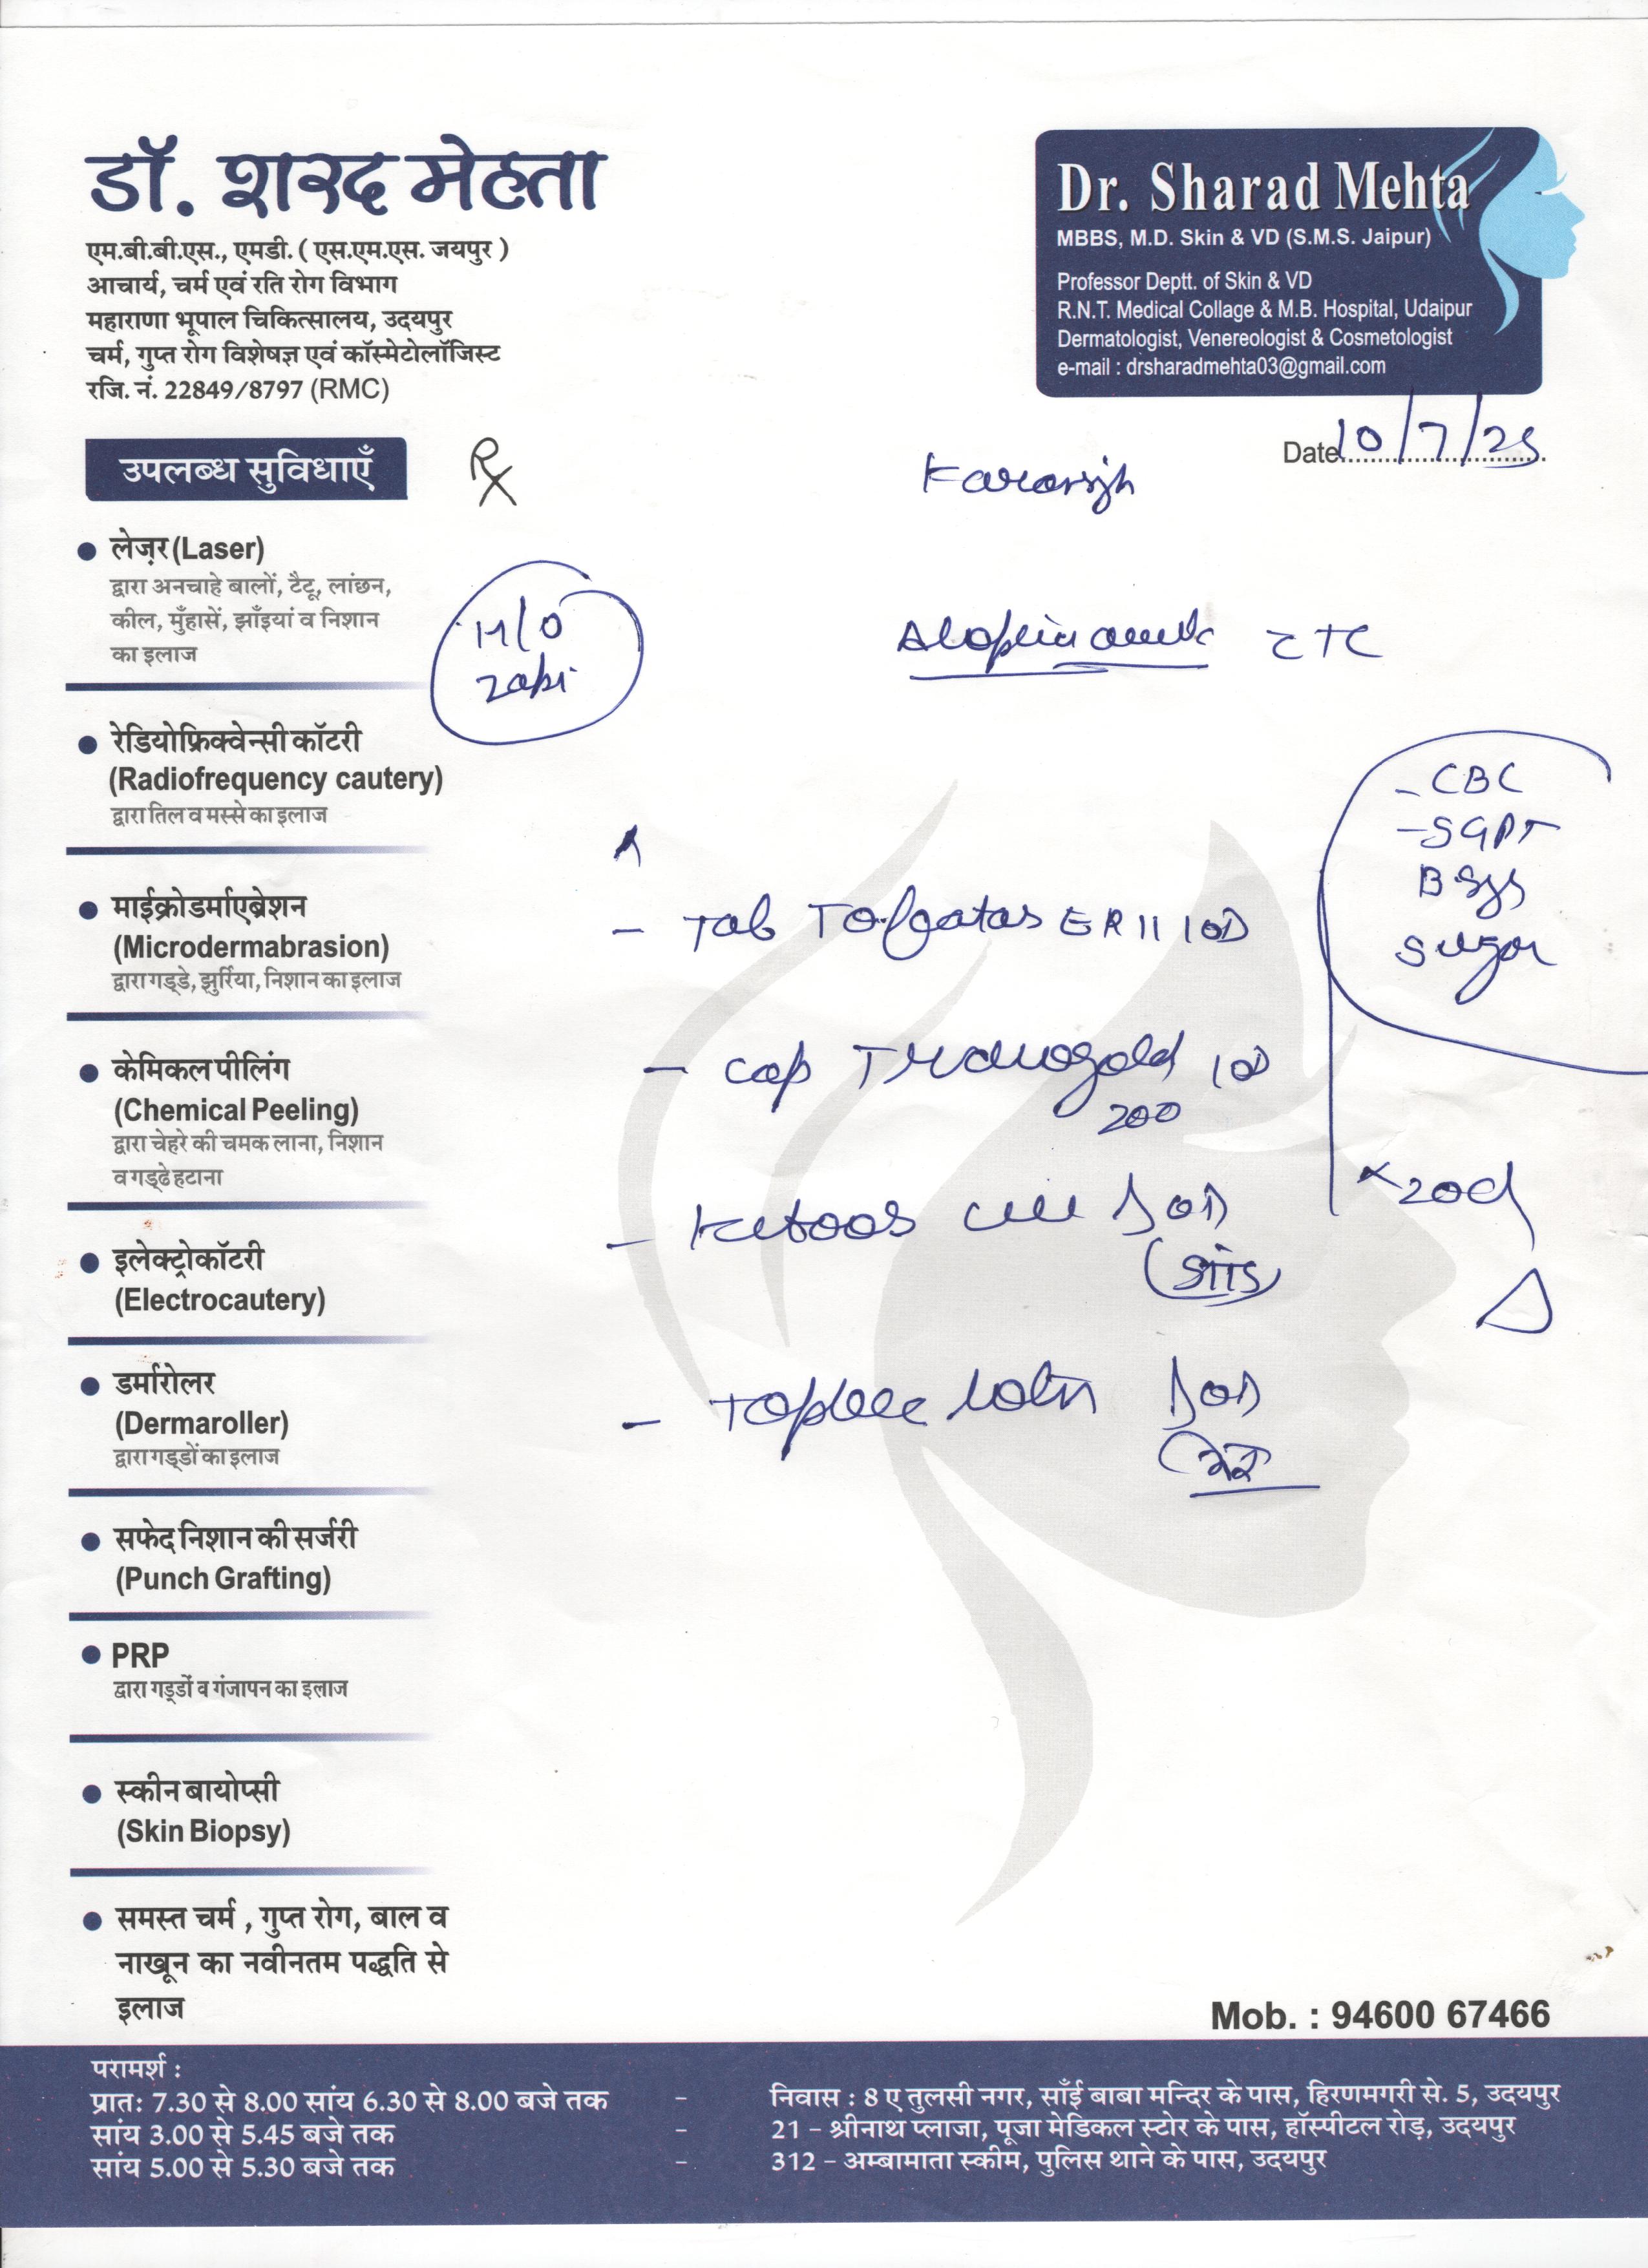 डॉ. शरद मेहता
एम.बी.बी.एस., एमडी. ( एस.एम.एस. जयपुर )
आचार्य, चर्म एवं रति रोग विभाग
महाराणा भूपाल चिकित्सालय, उदयपुर
चर्म, गुप्त रोग विशेषज्ञ एवं कॉस्मेटोलॉजिस्ट
रजि. नं. 22849/8797 (RMC)
Dr. Sharad Mehta
MBBS, M.D. Skin & VD (S.M.S. Jaipur)
Professor Deptt. of Skin & VD
R.N.T. Medical Collage & M.B. Hospital, Udaipur
Dermatologist, Venereologist & Cosmetologist
e-mail : drsharadmehta03@gmail.com
Date 10/7/25
उपलब्ध सुविधाएँ
Rx
लेज़र (Laser)
द्वारा अनचाहे बालों, टैटू, लांछन,
कील, मुँहासें, झाँइयां व निशान
का इलाज
रेडियोफ्रिक्वेन्सी कॉटरी
(Radiofrequency cautery)
द्वारा तिल व मस्से का इलाज
माईक्रोडर्माएब्रेशन
(Microdermabrasion)
द्वारा गड्डे, झुर्रिया, निशान का इलाज
केमिकल पीलिंग
(Chemical Peeling)
द्वारा चेहरे की चमक लाना, निशान
व गड्ढे हटाना
इलेक्ट्रोकॉटरी
(Electrocautery)
डर्मारोलर
(Dermaroller)
द्वारा गड्डों का इलाज
सफेद निशान की सर्जरी
(Punch Grafting)
PRP
द्वारा गड्डों व गंजापन का इलाज
स्कीन बायोप्सी
(Skin Biopsy)
समस्त चर्म , गुप्त रोग, बाल व
नाखून का नवीनतम पद्धति से
इलाज
H/O
- CBC
- SGPT
Sugar
- Tab ER 11 1 OD
- Cap 1 OD
200
- OD
x 20d
- OD
Mob. : 94600 67466
परामर्श :
प्रातः 7.30 से 8.00 सांय 6.30 से 8.00 बजे तक - निवास : 8 ए तुलसी नगर, साँई बाबा मन्दिर के पास, हिरणमगरी से. 5, उदयपुर
सांय 3.00 से 5.45 बजे तक - 21 - श्रीनाथ प्लाजा, पूजा मेडिकल स्टोर के पास, हॉस्पीटल रोड़, उदयपुर
सांय 5.00 से 5.30 बजे तक - 312 - अम्बामाता स्कीम, पुलिस थाने के पास, उदयपुर